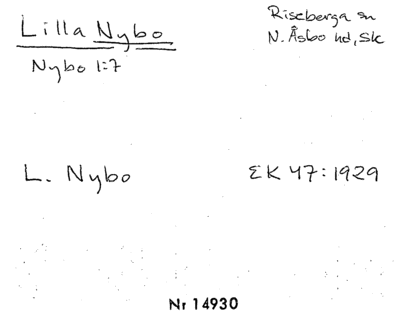 Lilla Nybo
Riseberga sn
N. Åsbo hd, Sk
Nybo 1:7
L. Nybo
EK 47:1929
Nr 14930